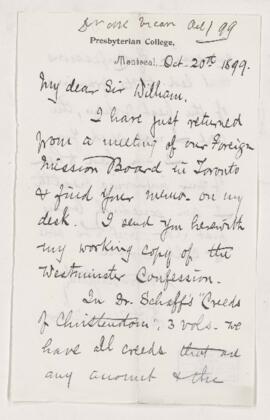 Oct / 99
Presbyterian College,
Montreal, Oct. 20th 1899.
My dear Sir William,
I have just returned
from a meeting of our Foreign
Mission Board in Toronto
& find your memo on my
desk. I send you herewith
my working copy of the
Westminster Confession.
In Dr. Schaff's "Creeds
of Christendom", 3 vols. we
have all creeds that are
any account & the